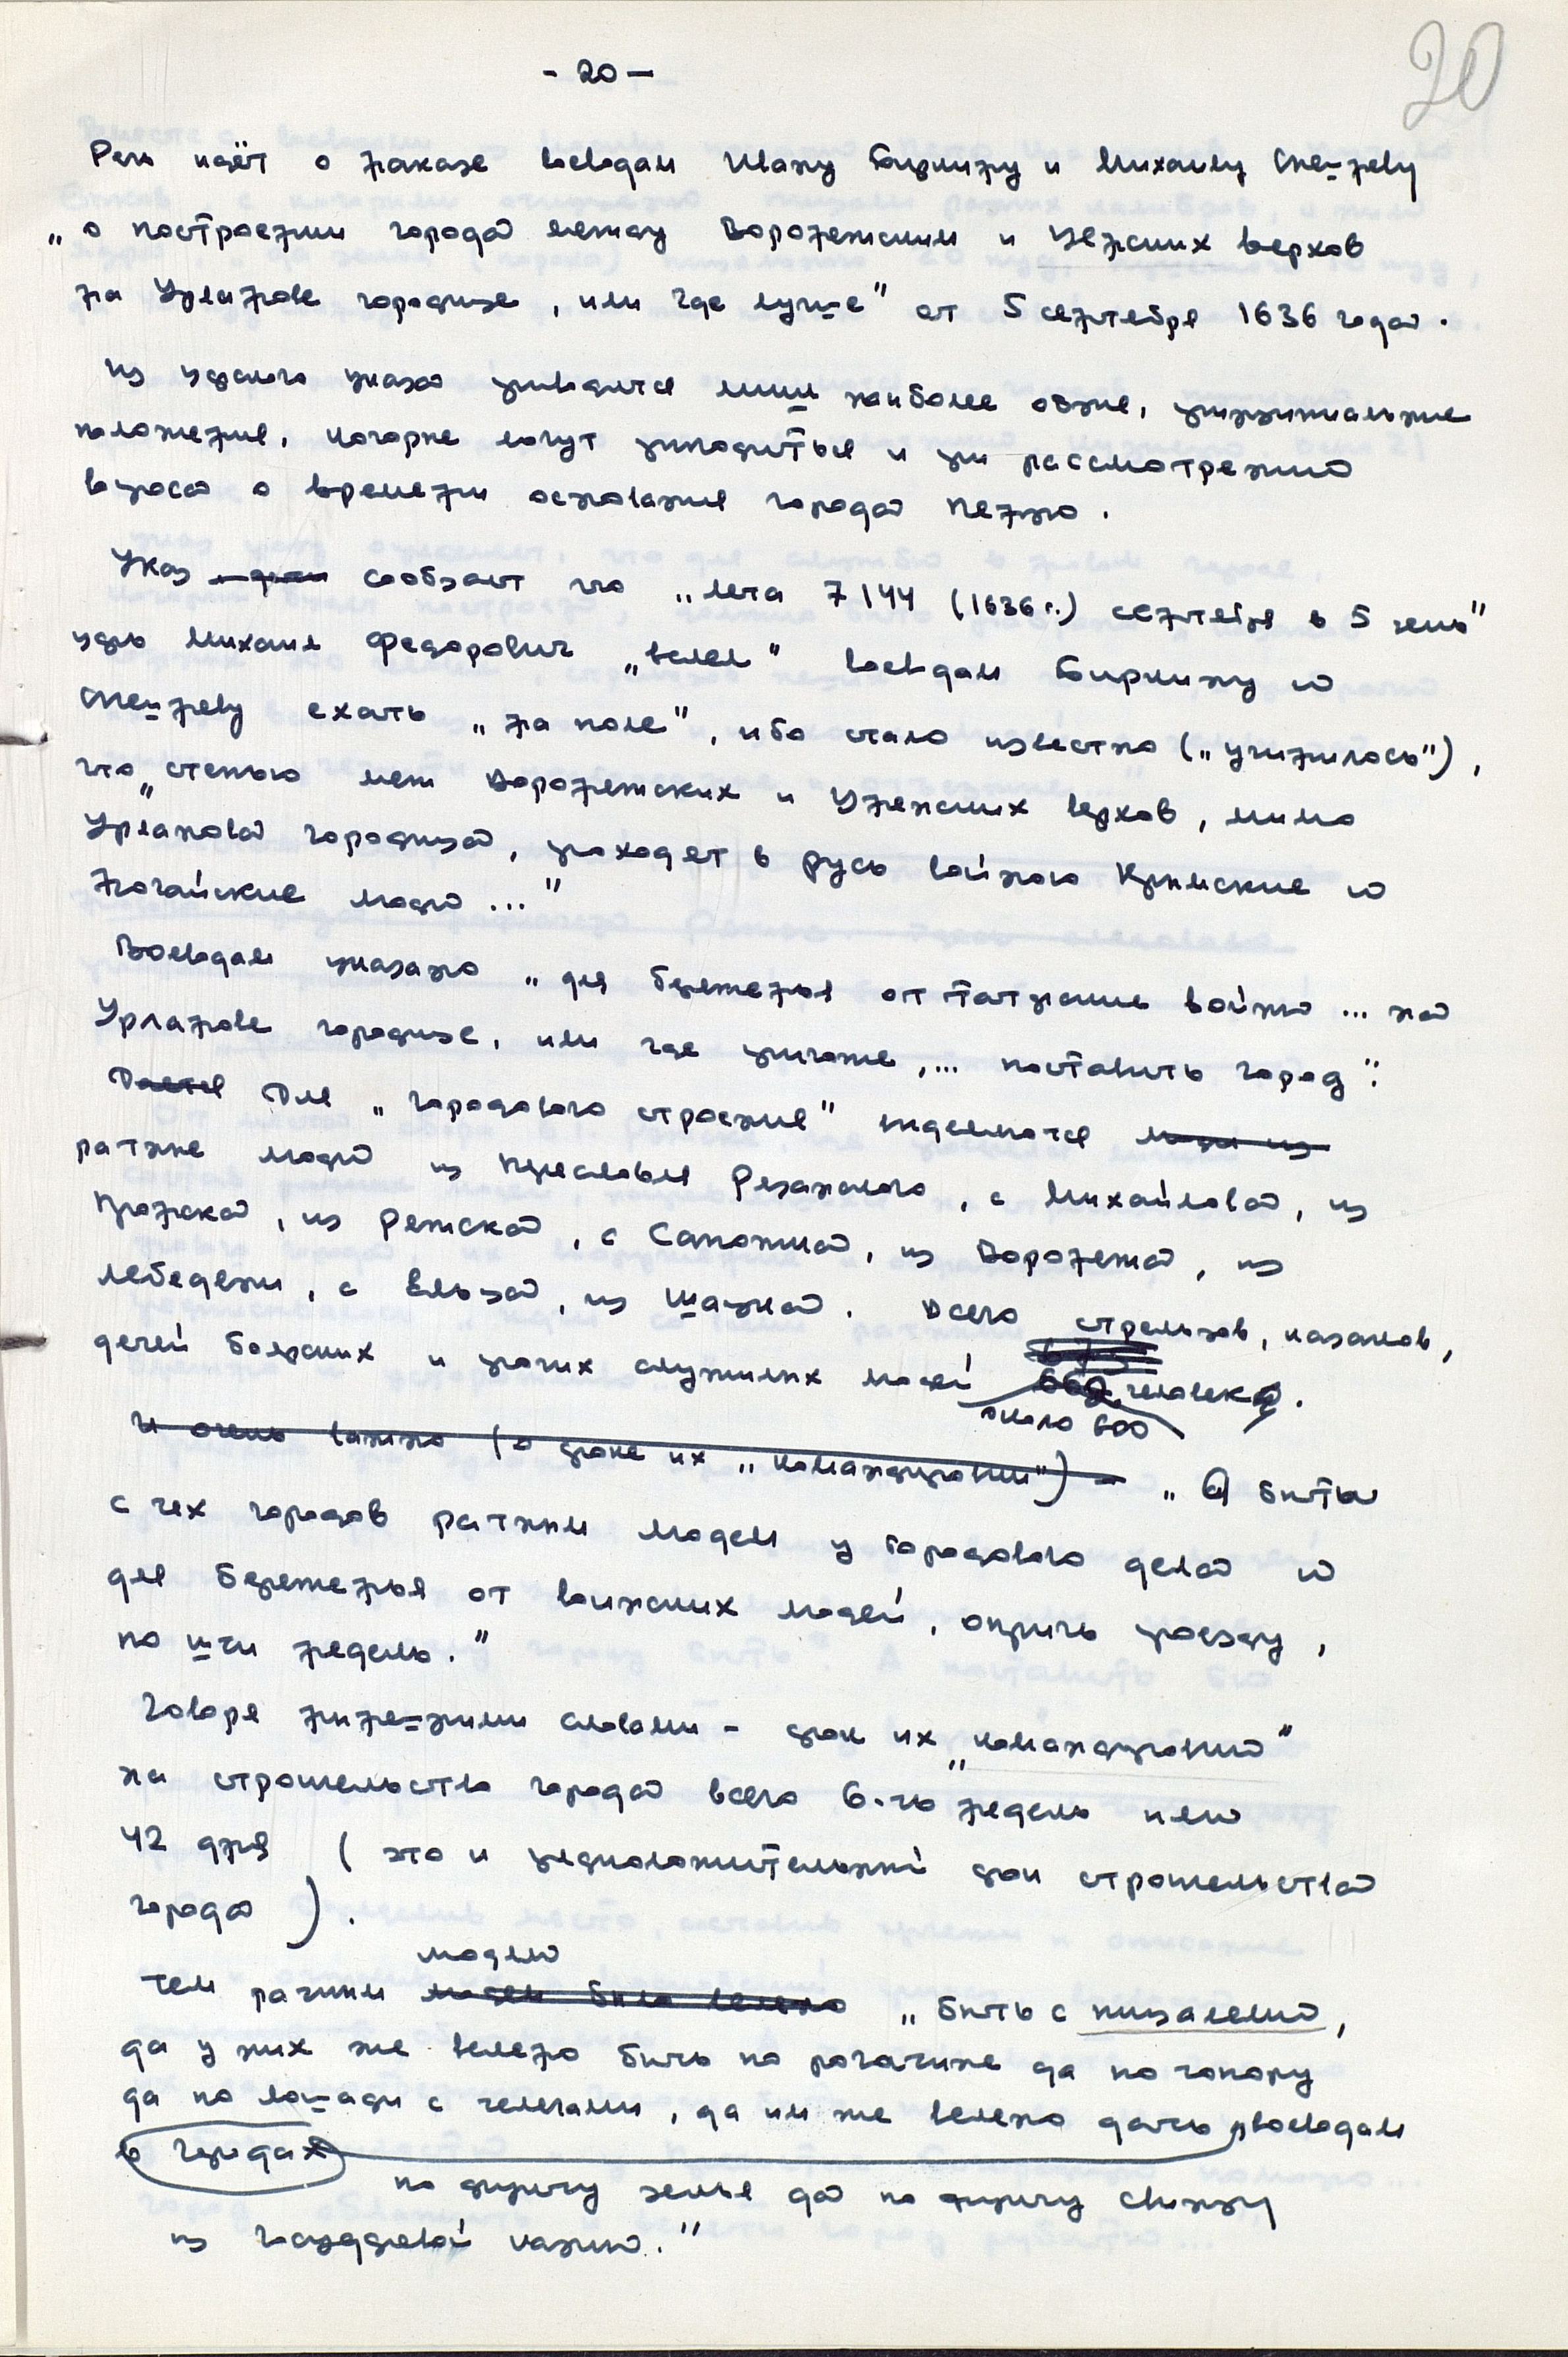 - 20 -
20
Речь идёт о наказе воеводам Ивану Биркину и Михаилу Спешневу
„о построении города между Воронежским и Ценских верхов
на Урлянове городище, или где лучше" от 5 сентября 1636 года.
Из царского указа приводится лишь наиболее общие, принципиальные
положения, которые могут пригодиться и при рассмотрении
вопроса о времени основания города Пензы.
Указ сообщает что „лета 7144 (1636 г.) сентября в 5 день"
царь Михаил Федорович „велел" воеводам Биркину и
Спешневу ехать „на поле", ибо стало известно („учинилось"),
что „степью меж Воронежских и Ценских верхов, мимо
Урланова городища, проходят в Русь войною Крымские и
Ногайские люди ..."
Воеводам указано „для береженья от татарские войны ... на
Урланове городище, или где пригоже, ... поставить город".
Дается Для „городового строения" выделяются
ратные люди из Переславля Резанского, с Михайлова, из
Пронска, из Ряжска, с Сапожка, из Воронежа, из
Лебедяни, с Ельца, из Шацка. Всего стрельцов, казаков,
детей боярских и прочих служилых людей 662 человека.
около 600
И очень важно (о сроке их „командировки") - „А быть
с тех городов ратным людем у городового дела и
для береженья от воинских людей, опричь проезду,
по шти недель."
Говоря нынешними словами - срок их „командировки"
на строительство города всего 6-ть недель или
42 дня (это и предположительный срок строительства
города).
людям
Тем ратным людем было велено „быть с пищалеми,
да у них же велено быть по рогатине да по топору
да по лошади с телегами, да им же велено дать воеводам
в городах по фунту зелья да по фунту свинцу
из государевой казны."